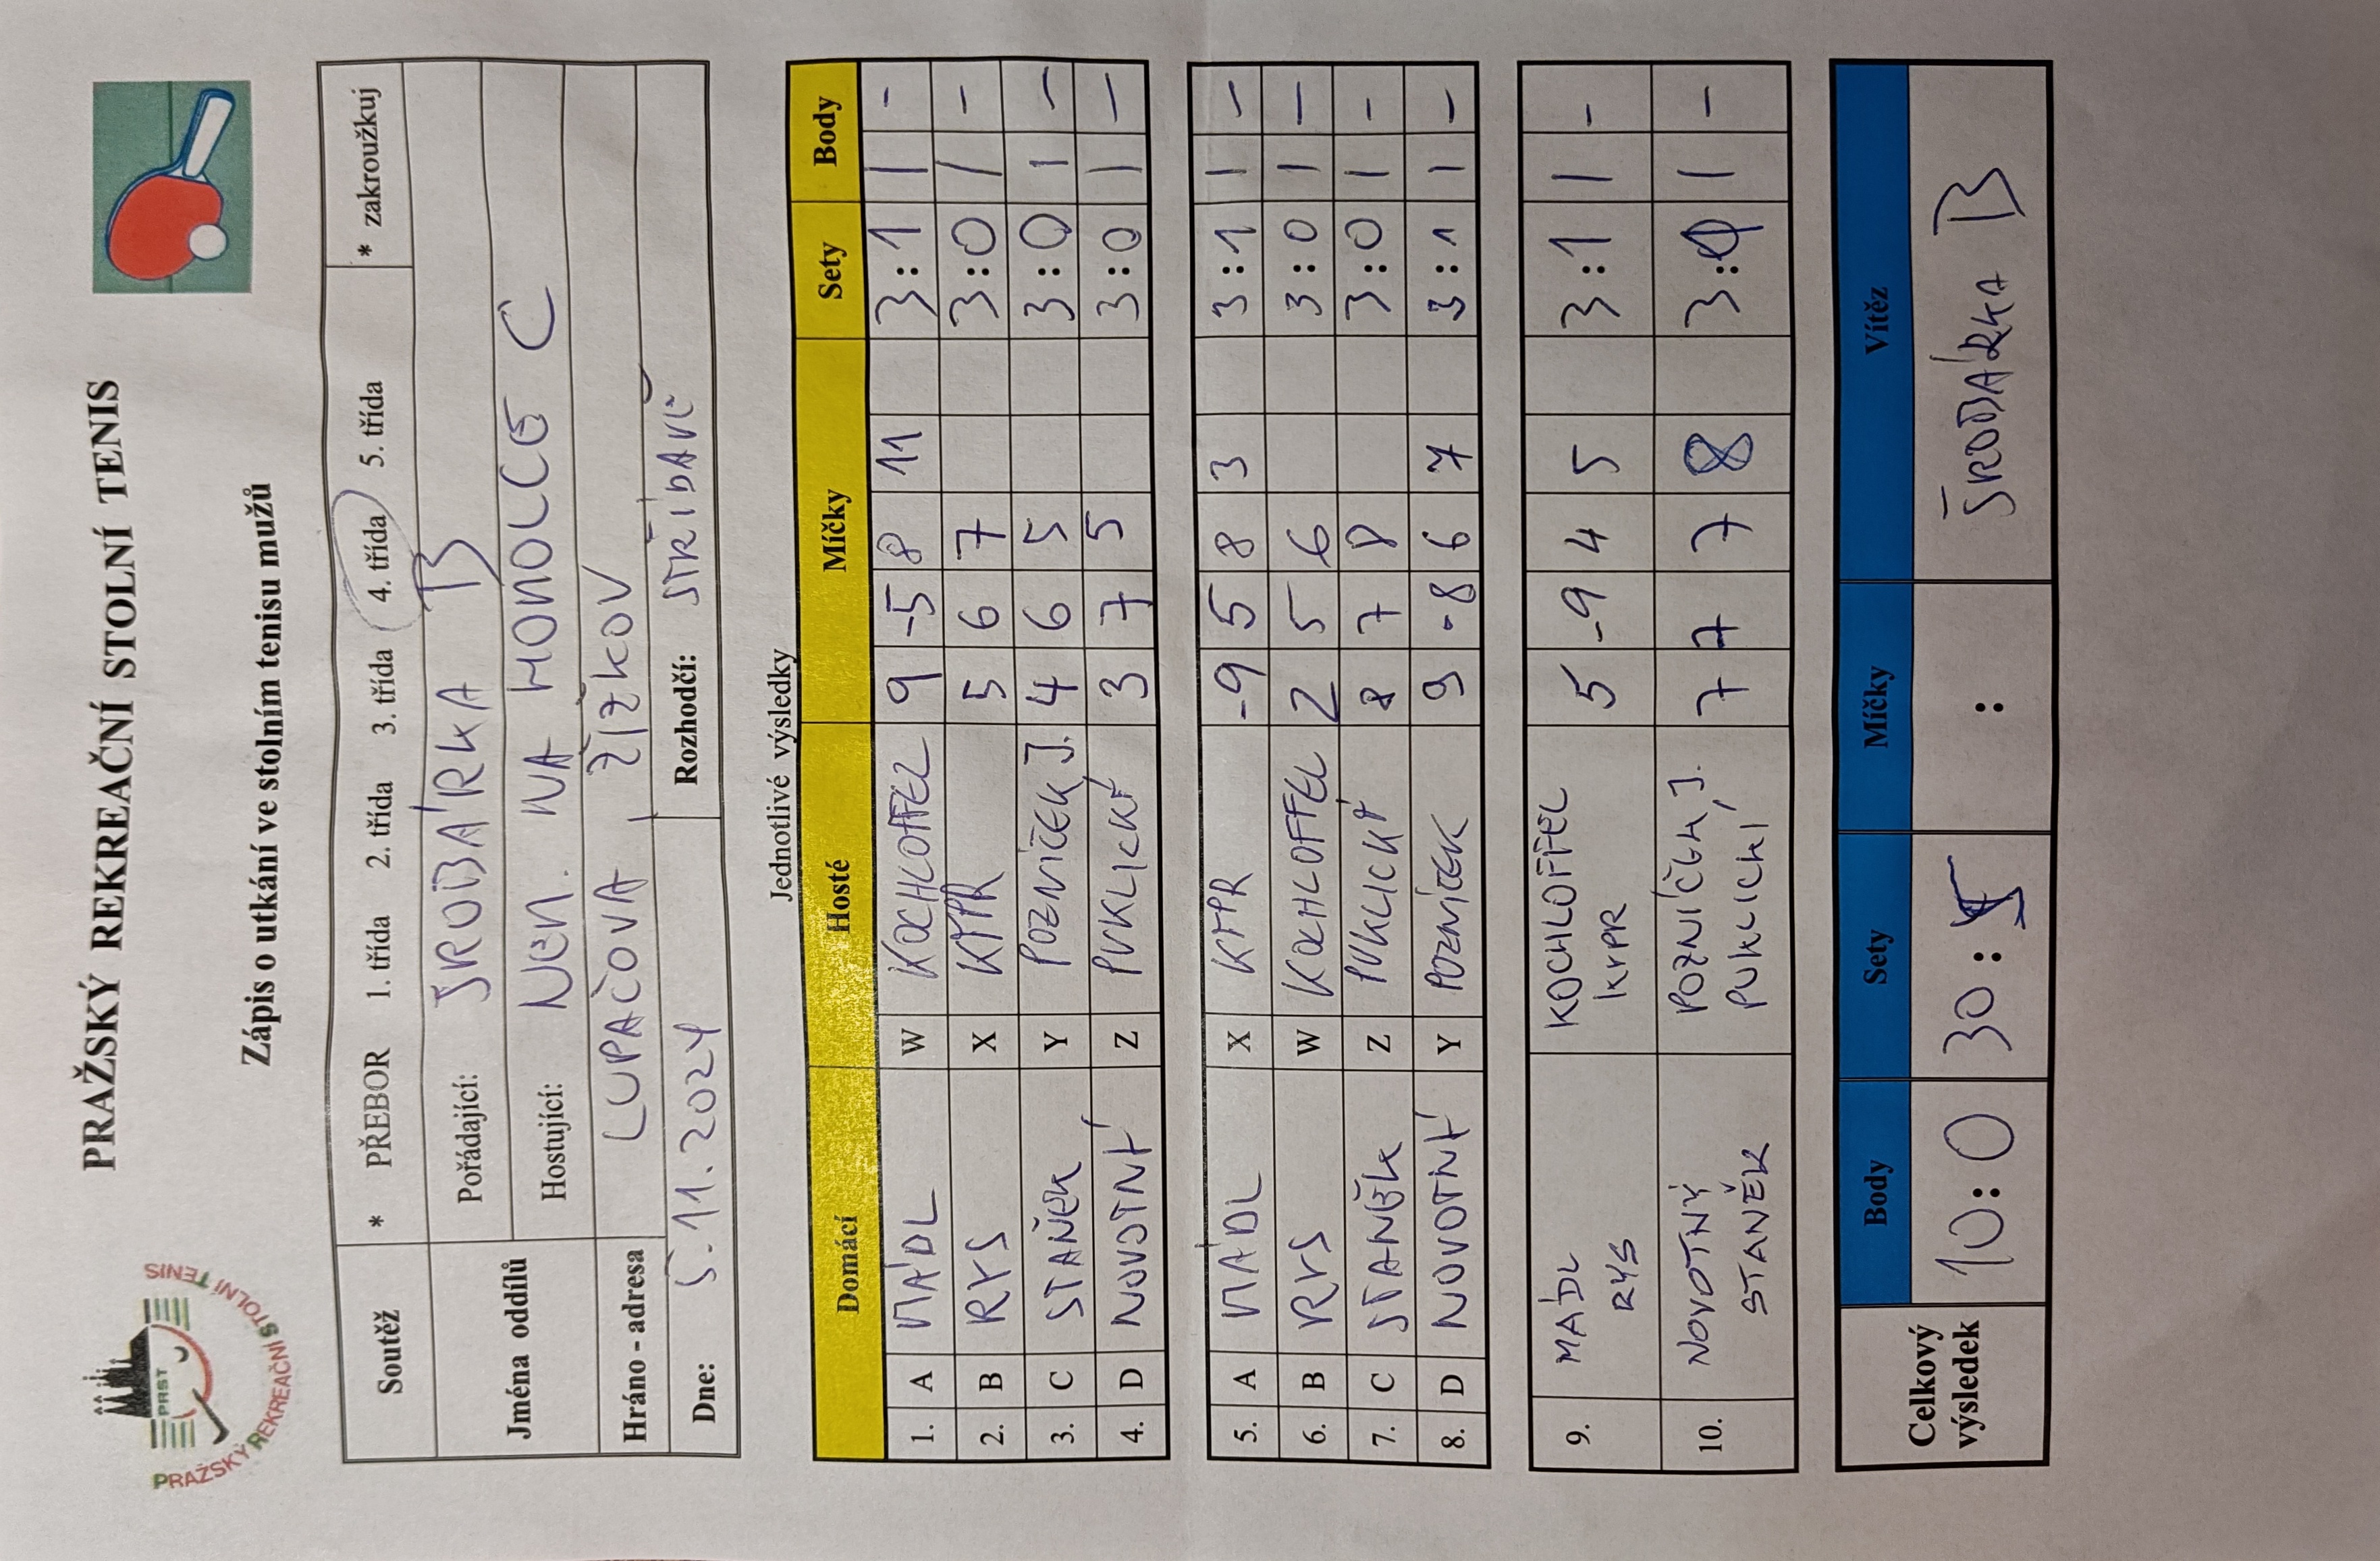 PRAŽSKÝ REKREAČNÍ STOLNÍ TENIS
PRST
PRAŽSKÝ REKREAČNÍ STOLNÍ TENIS
Zápis o utkání ve stolním tenisu mužů
Soutěž * PŘEBOR 1. třída 2. třída 3. třída 4. třída 5. třída * zakroužkuj
Jména oddílů Pořádající: SROBÁRKA B
Hostující: NEM. NA HOMOLCE C
Hráno - adresa LUPAČOVA, ŽIŽKOV
Dne: 5.11.2024 Rozhodčí: STŘÍDAVĚ
Jednotlivé výsledky
Domácí Hosté Míčky Sety Body
1. A MÁDL W KOCHLOFFEL 9 -5 8 11 3:1 1 -
2. B RYS X KYPR 5 6 7 3:0 1 -
3. C STANĚK Y POZNÍČEK J. 4 6 5 3:0 1 -
4. D NOVOTNÝ Z PUKLICKÝ 3 7 5 3:0 1 -
5. A MÁDL X KYPR -9 5 8 3 3:1 1 -
6. B RYS W KOCHLOFFEL 2 5 6 3:0 1 -
7. C STANĚK Z PUKLICKÝ 8 7 8 3:0 1 -
8. D NOVOTNÝ Y POZNÍČEK 9 -8 6 7 3:1 1 -
9. MÁDL KOCHLOFFEL 5 -9 4 5 3:1 1 -
RYS KYPR
10. NOVOTNÝ POZNÍČEK, J. 7 7 7 8 3: 1 -
STANĚK PUKLICKÝ
Celkový výsledek Body Sety Míčky Vítěz
10:0 30: : ŠROBÁRKA B